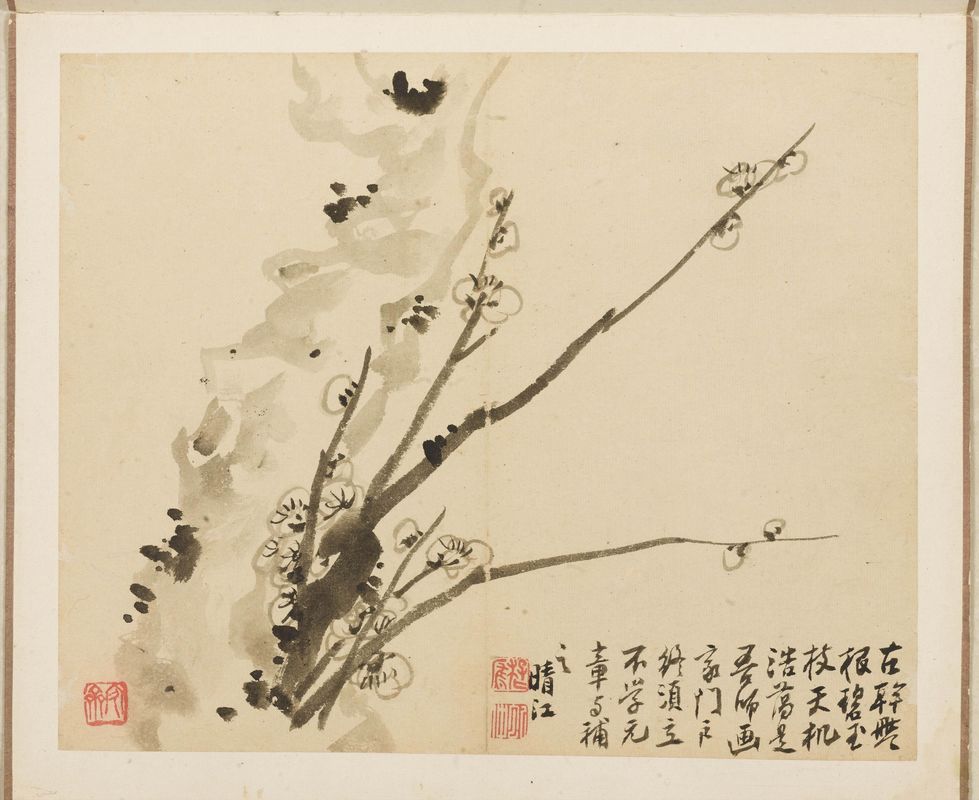 古幹盤
根碧玉
枝天机
浩蕩是
吾師画
家門户
終須立
不学元
章与補
之
晴江